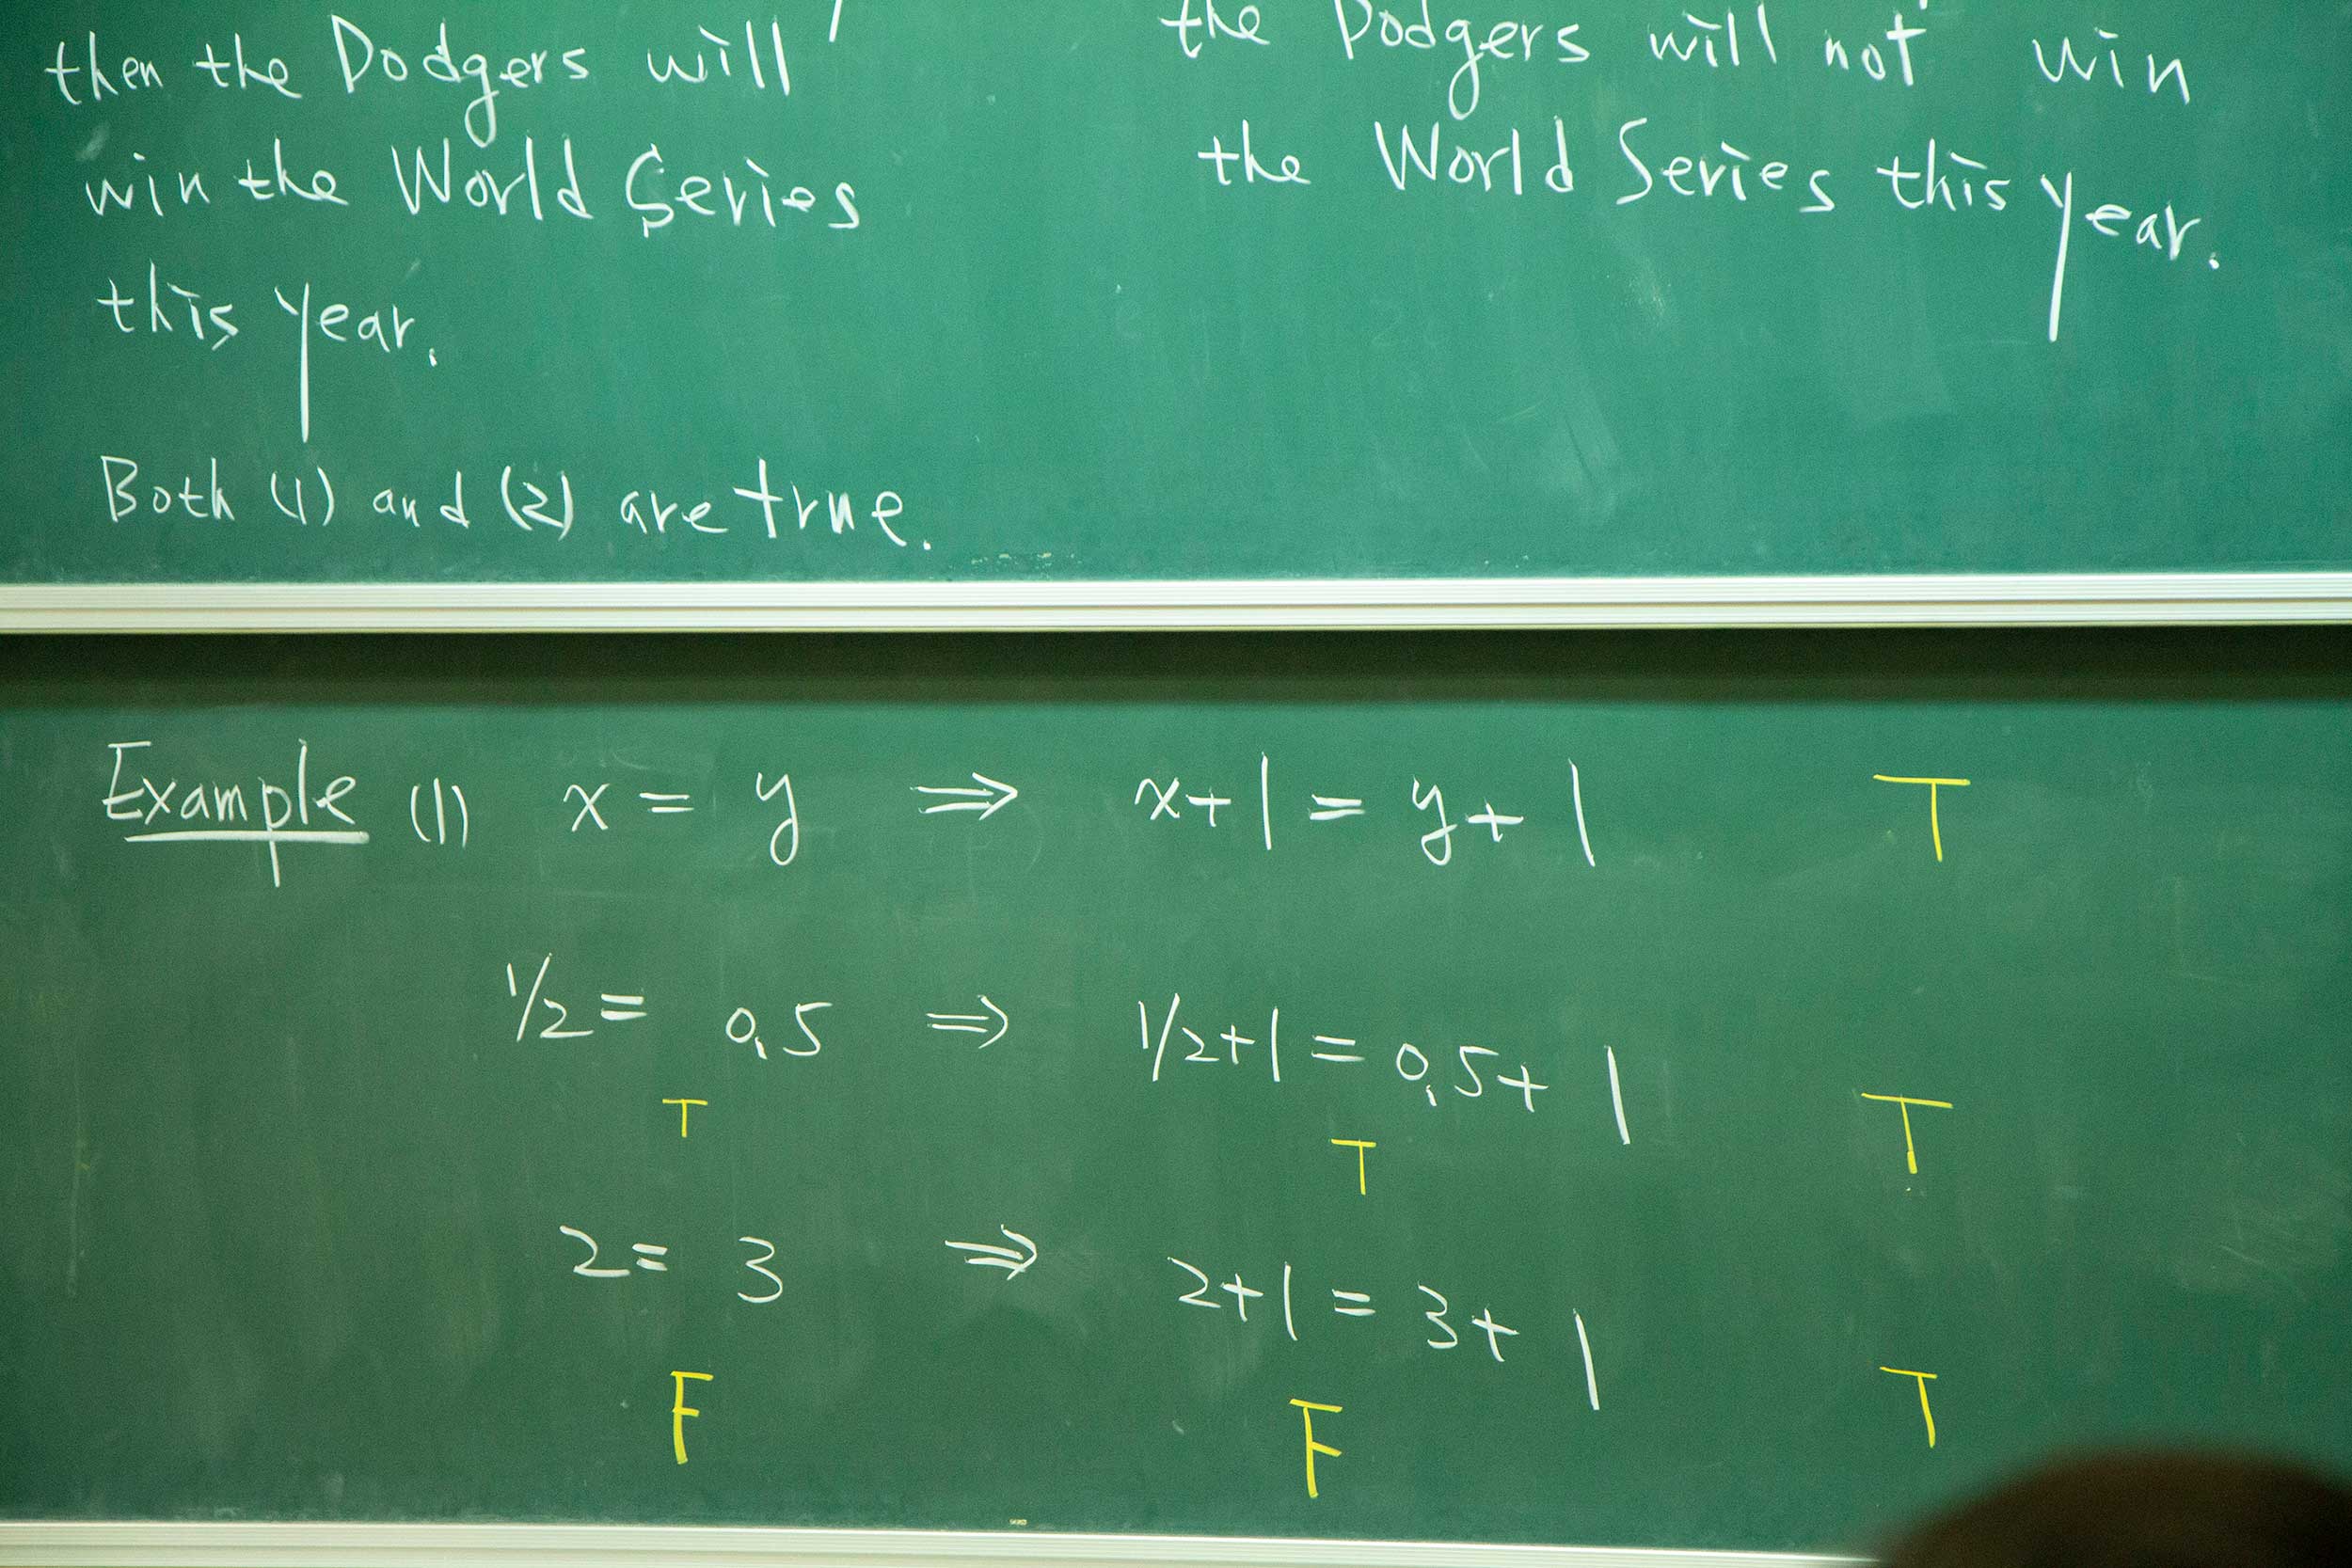 then the Dodgers will
win the World Series
this year.
Both (1) and (2) are true.
the Dodgers will not win
the World Series this year.
Example (1) x = y ⇒ x+1 = y+1 T
1/2 = 0.5 ⇒ 1/2+1 = 0.5+1 T
T T
2 = 3 ⇒ 2+1 = 3+1 T
F F